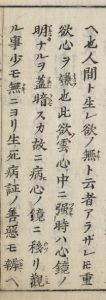 ヘ也人間ト生レ欲ノ無ト云者アラザレ𪜈重
欲心ヲ嫌也此欲雲心中ニ強時ハ心鏡ノ
明ナルヲ蓋暗スカ故ニ病心ノ鏡ニ移リ観
ル事少モ無ニヨリ生死病証ノ善悪モ辨ヘ